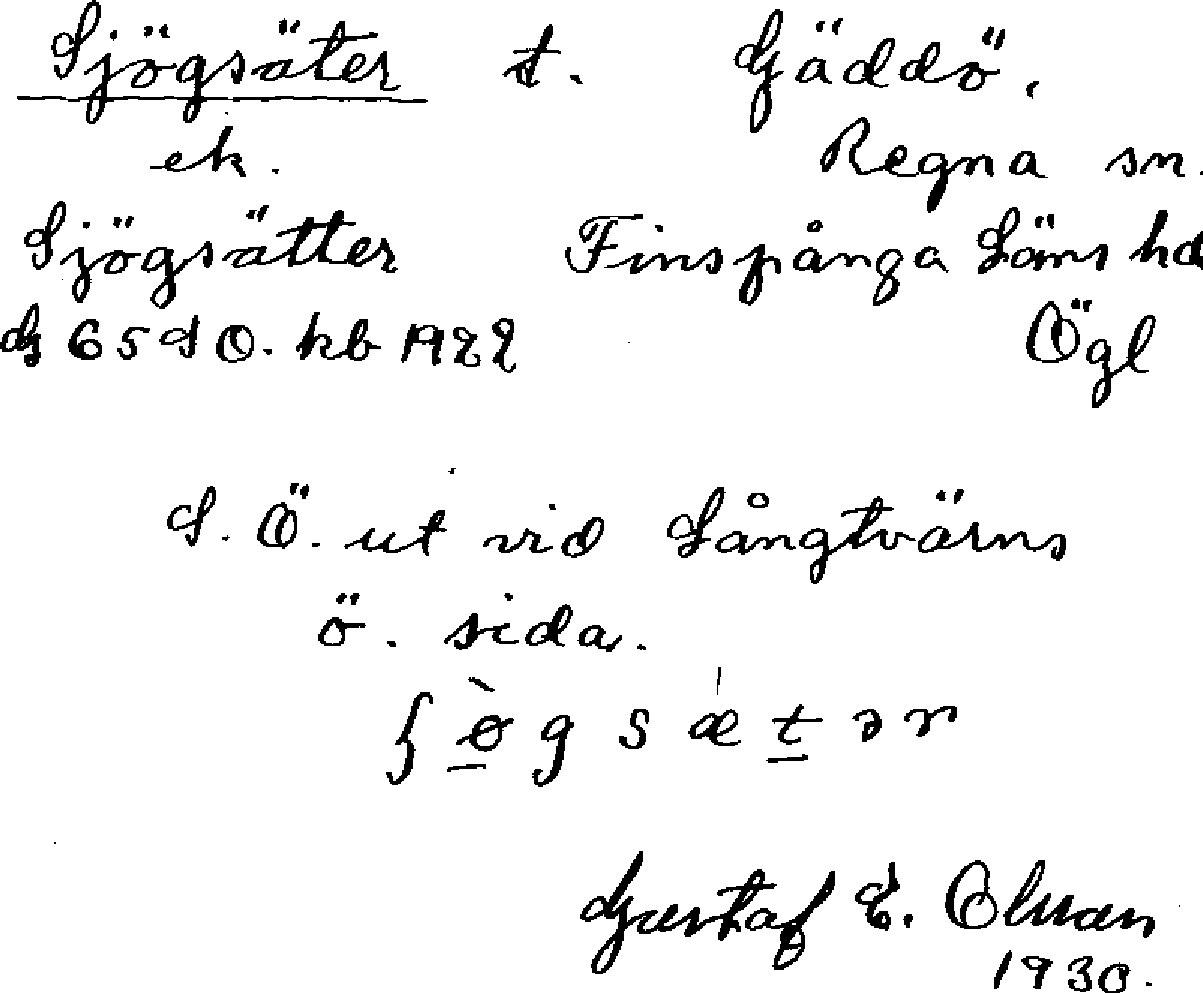 Sjögsäter t. Gäddö.
ek. Regna sn.
Sjögsätter Finspånga Läns hd
G 65 SO. kb 1922 Ögl
S. Ö. ut vid Långtvärns
ö. sida.
ʃ ø̀ g s æ t ə r
Gustaf E. Olman
1930.